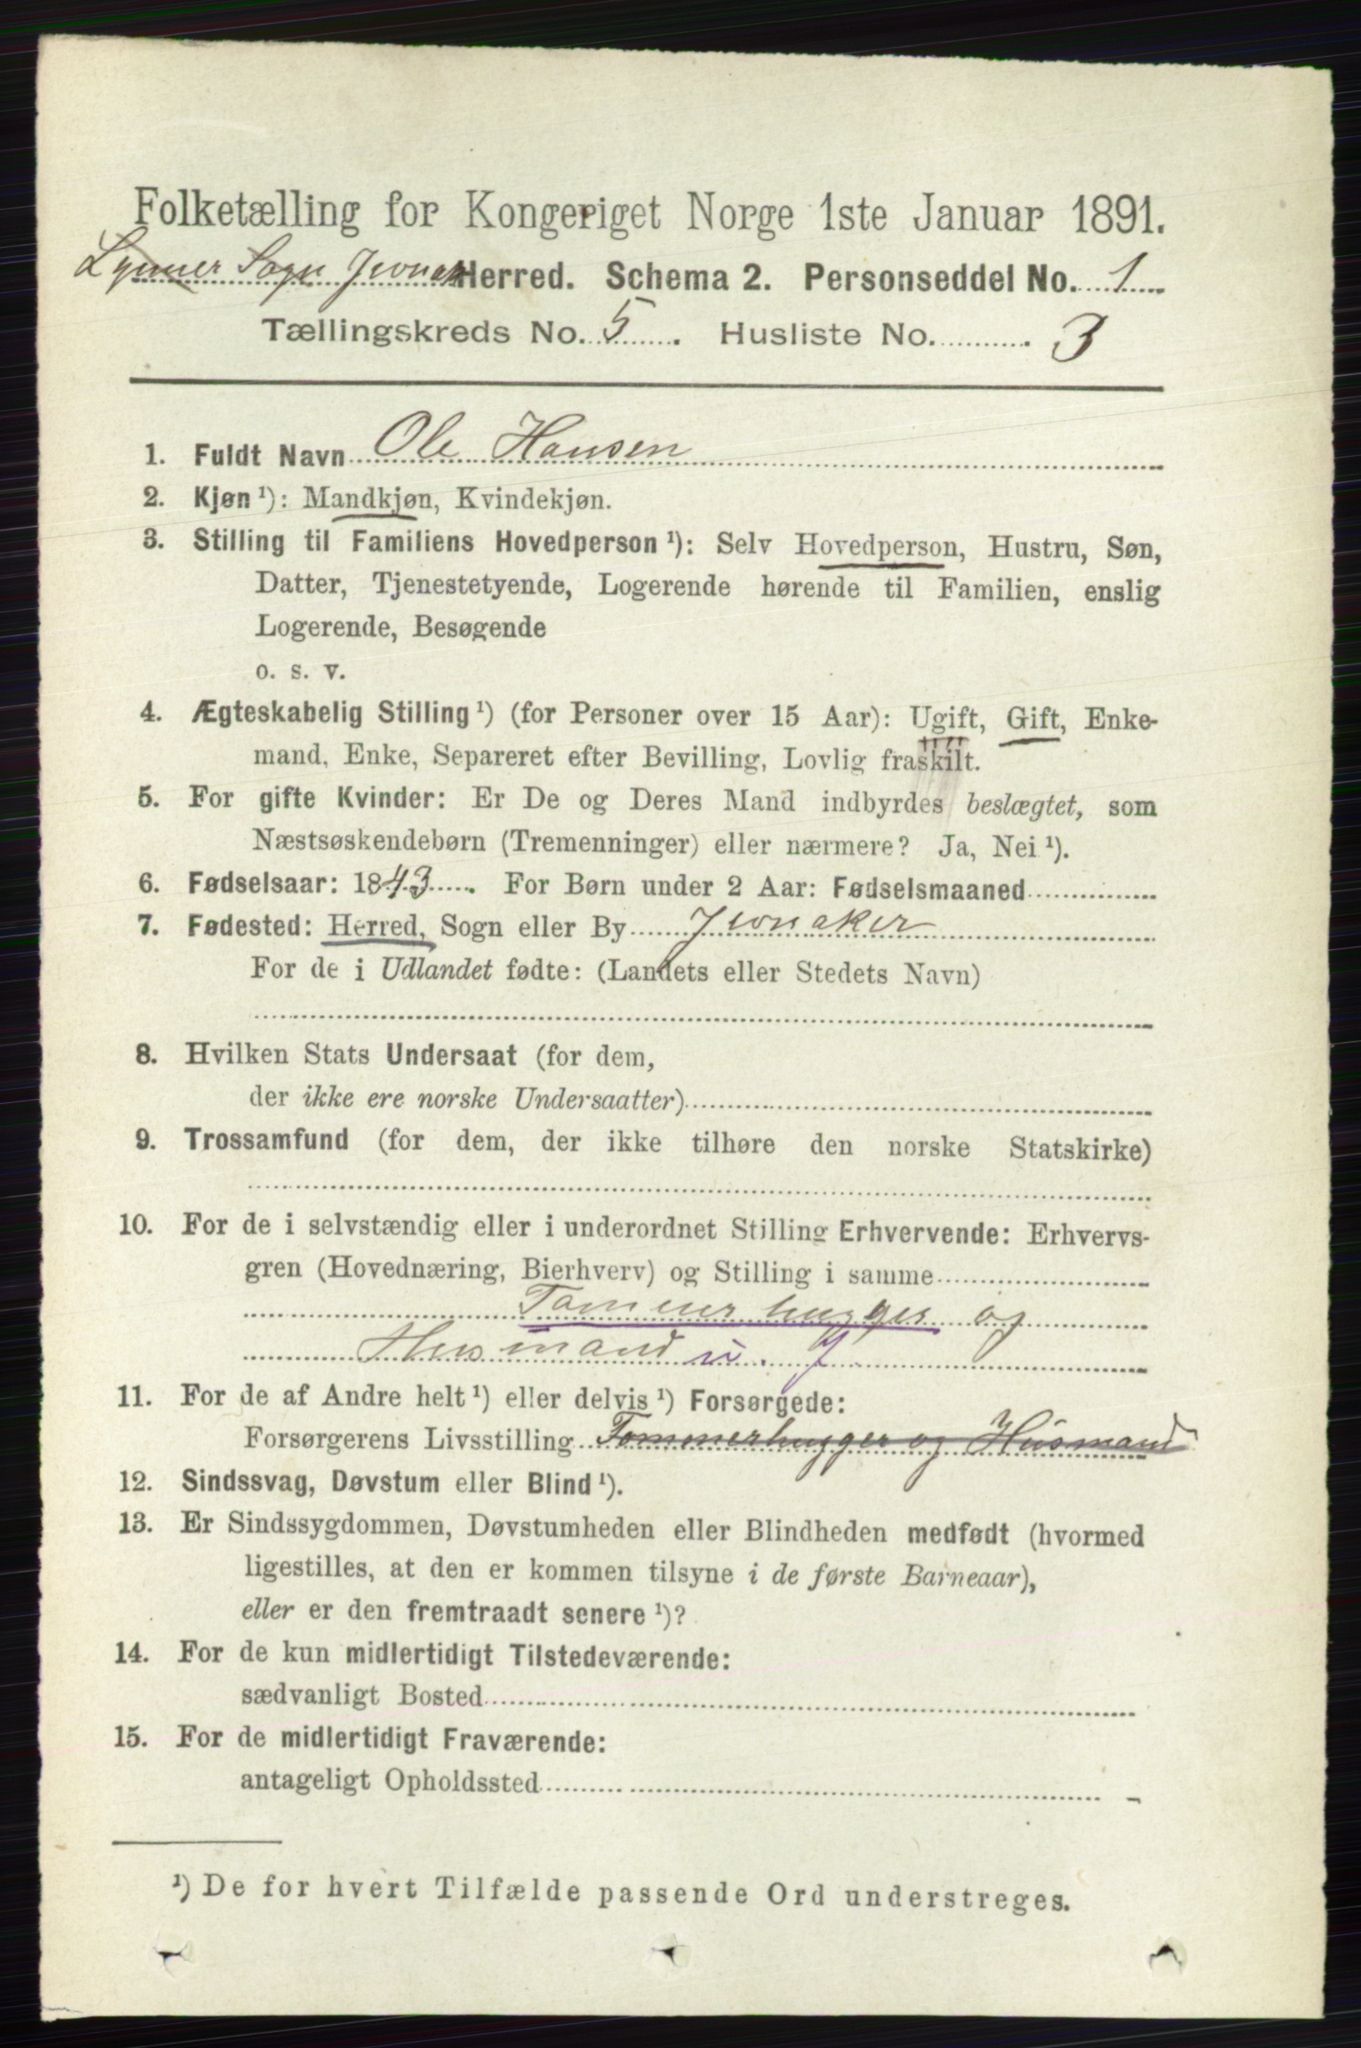 Folketælling for Kongeriget Norge 1ste Januar 1891.
Lynner Sogn Jevnaker Herred. Schema 2. Personseddel No. 1
Tællingskreds No. 5. Husliste No. 3
1. Fuldt Navn Ole Hansen
2. Kjøn ¹): Mandkjøn, Kvindekjøn.
3. Stilling til Familiens Hovedperson ¹): Selv Hovedperson, Hustru, Søn,
Datter, Tjenestetyende, Logerende hørende til Familien, enslig
Logerende, Besøgende
o. s. v.
4. Ægteskabelig Stilling ¹) (for Personer over 15 Aar): Ugift, Gift, Enke-
mand, Enke, Separeret efter Bevilling, Lovlig fraskilt.
5. For gifte Kvinder: Er De og Deres Mand indbyrdes beslægtet, som
Næstsøskendebørn (Tremenninger) eller nærmere? Ja, Nei ¹).
6. Fødselsaar: 1843. For Børn under 2 Aar: Fødselsmaaned
7. Fødested: Herred, Sogn eller By Jevnaker
For de i Udlandet fødte: (Landets eller Stedets Navn)
8. Hvilken Stats Undersaat (for dem,
der ikke ere norske Undersaatter)
9. Trossamfund (for dem, der ikke tilhøre den norske Statskirke)
10. For de i selvstændig eller i underordnet Stilling Erhvervende: Erhvervs-
gren (Hovednæring, Bierhverv) og Stilling i samme
Tømmerhugger og
Husmand u. J
11. For de af Andre helt ¹) eller delvis ¹) Forsørgede:
Forsørgerens Livsstilling Tømmerhugger og Husmand
12. Sindssvag, Døvstum eller Blind ¹).
13. Er Sindssygdommen, Døvstumheden eller Blindheden medfødt (hvormed
ligestilles, at den er kommen tilsyne i de første Barneaar),
eller er den fremtraadt senere ¹)?
14. For de kun midlertidigt Tilstedeværende:
sædvanligt Bosted
15. For de midlertidigt Fraværende:
antageligt Opholdssted
¹) De for hvert Tilfælde passende Ord understreges.